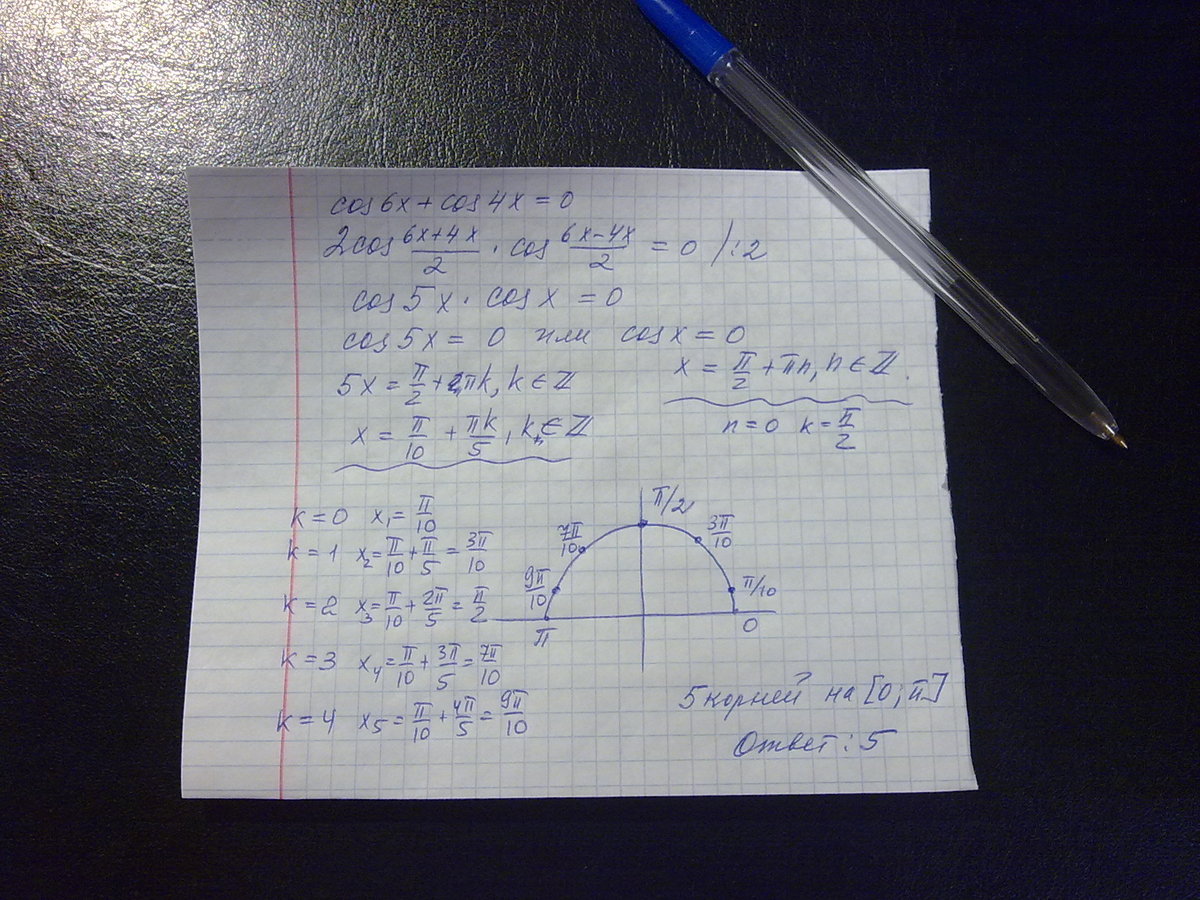 cos6x + cos4x = 0
2cos (6x+4x)/2 · cos (6x−4x)/2 = 0 /:2
cos5x · cosx = 0
cos5x = 0 или cosx = 0
5x = π/2 + πk, k ∈ Z
x = π/2 + πn, n ∈ Z.
x = π/10 + πk/5, k ∈ Z
n = 0 k = π/2
k = 0 x₁ = π/10
k = 1 x₂ = π/10 + π/5 = 3π/10
k = 2 x₃ = π/10 + 2π/5 = π/2
k = 3 x₄ = π/10 + 3π/5 = 7π/10
k = 4 x₅ = π/10 + 4π/5 = 9π/10
π/2
7π/10
3π/10
9π/10
π/10
π
0
5 корней на [0; π]
Ответ: 5